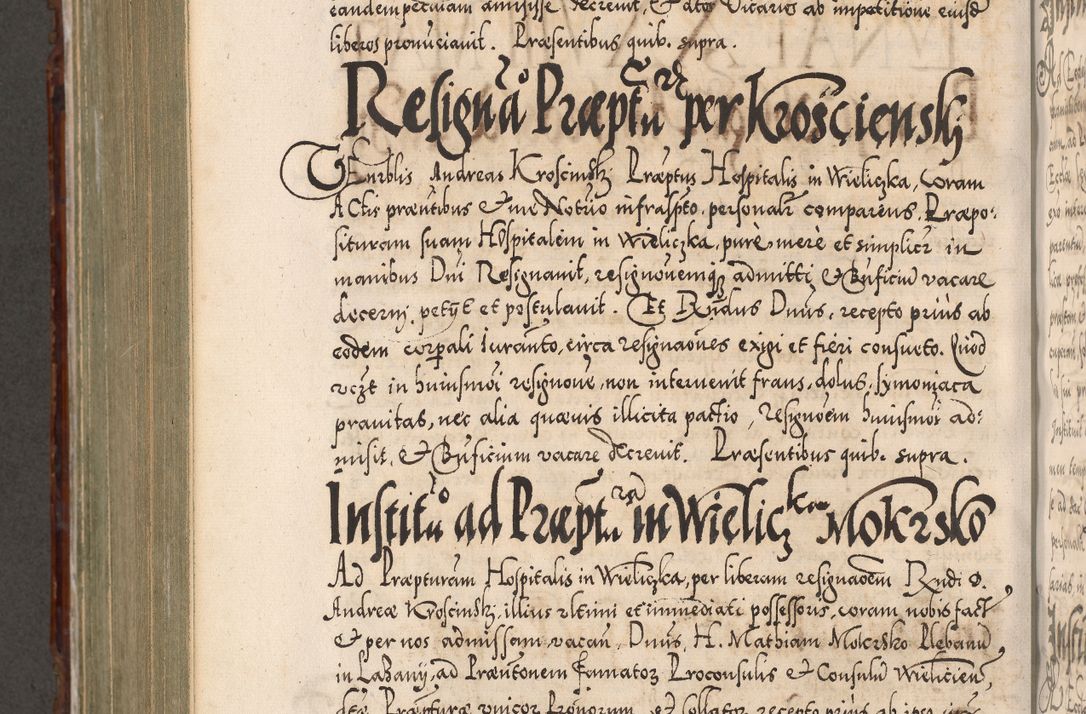 eandem pecuniam amisisse decrevit, et dẽos Vicarios ab impetitione eiusd
liberos pronunciavit. Præsentibus quib. supra.
Resignaõ Præptũræ per Krosciensk̨
VEnrblis Andreas Kroscinsky Præptus Hospitalis in Wieliczka, Coram
Actis præntibus et me Notrio infrascpto, personalr comparens, Præpo:
situram suam Hospitalem in Wieliczka, purè, merè et simplicr in
manibus Dni Resignavit, resignõnemq admitti, et Bnficiũ vacare
decerni, petijt et postulavit. Et Rndus Dnus, recepto priùs ab
eodem corpali iuramto, circa resignaõnes exigi et fieri consueto. Quod
vczt in huiusmõi resignõne, non intervenit fraus, dolus, symoniaca
pravitas, nec alia quævis illicita pactio, Resignõem huiusmõi ad:
misit, et Bnficium vacare decrevit. Præsentibus quib. supra.
Institũo ad Præptũrã in Wieliczka Mokrsko
Ad Præpturam Hospitalis in Wieliczka, per liberam resignaõem Rndi D.
Andreæ Kroscinsky, illius ultimi et immediati possessoris, coram nobis fact
et per nos admissam, vacan, Dnus, H. Mathiam Mokrsko Plebanũ
in Lazany, ad Præntõnem Famator Proconsulis et Consulũ Wieliciens,
dtæ Præpturæ unicor Prõnorum, et Collator recepto priùs ab ipso